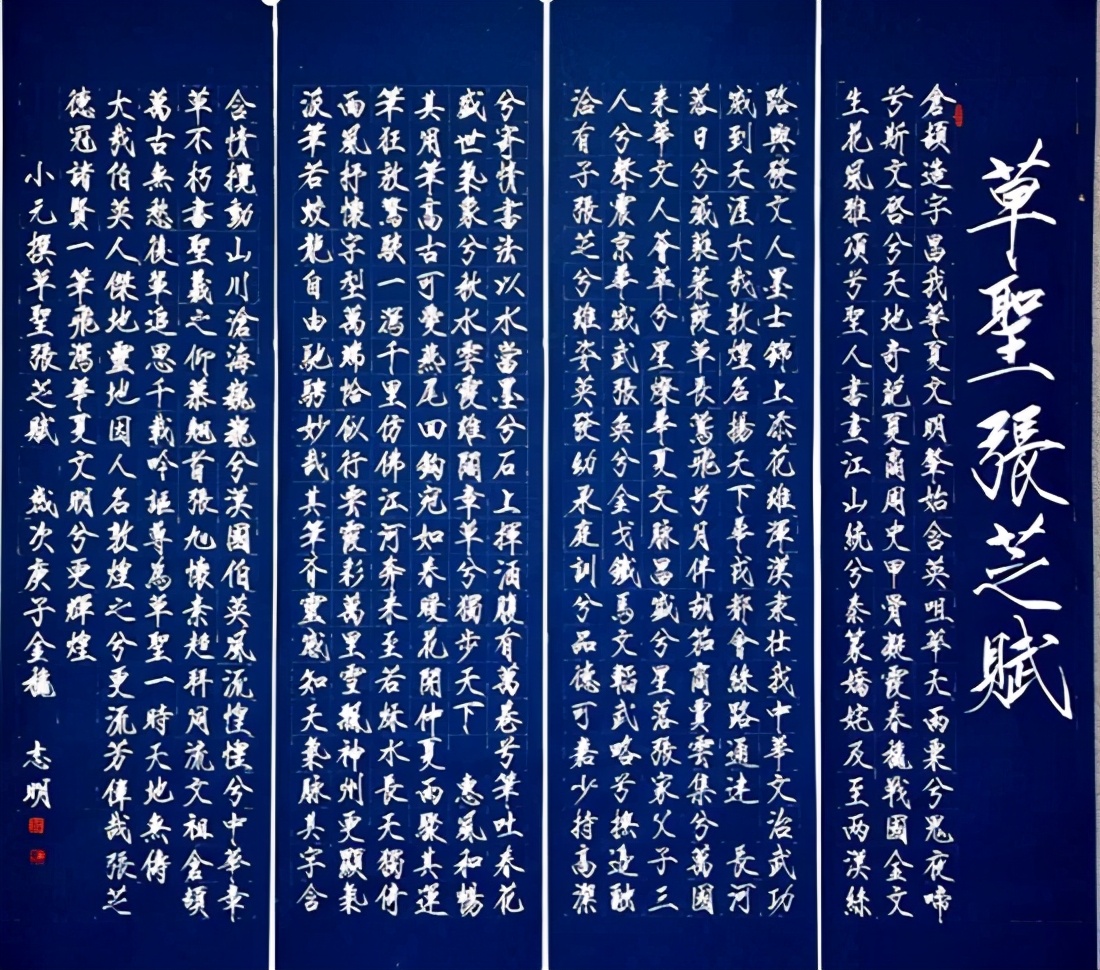 草聖張芝賦
倉頡造字昌我華夏文明肇始含英咀華天雨粟兮鬼夜啼
兮斯文啓兮天地奇葩夏商周史甲骨凝霞春穐戰國金文
生花風雅頌兮聖人書畫江山統兮秦篆嬌姹及至兩漢絲
路興發文人墨士錦上添花雄渾漢隶壯我中華文治武功
威到天涯大哉敦煌名揚天下華戎都會絲路通達 長河
落日兮羲葵暮葭草長鶯飛兮月伴胡笳商賈雲集兮萬國
来華文人薈萃兮星燦華夏文脉昌盛兮星落張家父子三
人兮聲震京華威武張奐兮金戈鐵馬文韜武略兮擁邊融
洽有子張芝兮雄姿英發幼承庭訓兮品德可嘉少持高潔
兮寄情書法以水當墨兮石上揮洒腹有萬卷兮筆吐春花
盛世氣象兮秋水雲霞雄開章草兮獨步天下 惠風和暢
其用筆高古可愛燕尾回鈎宛如春暖花開仲夏雨驟其運
筆狂放駑駃一瀉千里仿佛江河奔来至若妳水長天獨倚
西風抒懷字型萬端恰似行雲霞彩萬里雪飄神州更顯氣
派筆若蛟龍自由馳騁妙哉其筆有靈感知天氣脉其字含
含情攬動山川滄海巍巍兮漢國伯英風流惶惶兮中華章
草不朽書聖羲之仰慕翹首張旭懷素趨拜同流文祖倉頡
萬古無愁後輩追思千載吟謳尊為草聖一時天地無儔
大哉伯英人傑地靈地因人名敦煌之兮更流芳偉哉張芝
德冠諸賢一筆飛鴻華夏文明兮更輝煌
小元撰草聖張芝賦 歲次庚子金穐 志明